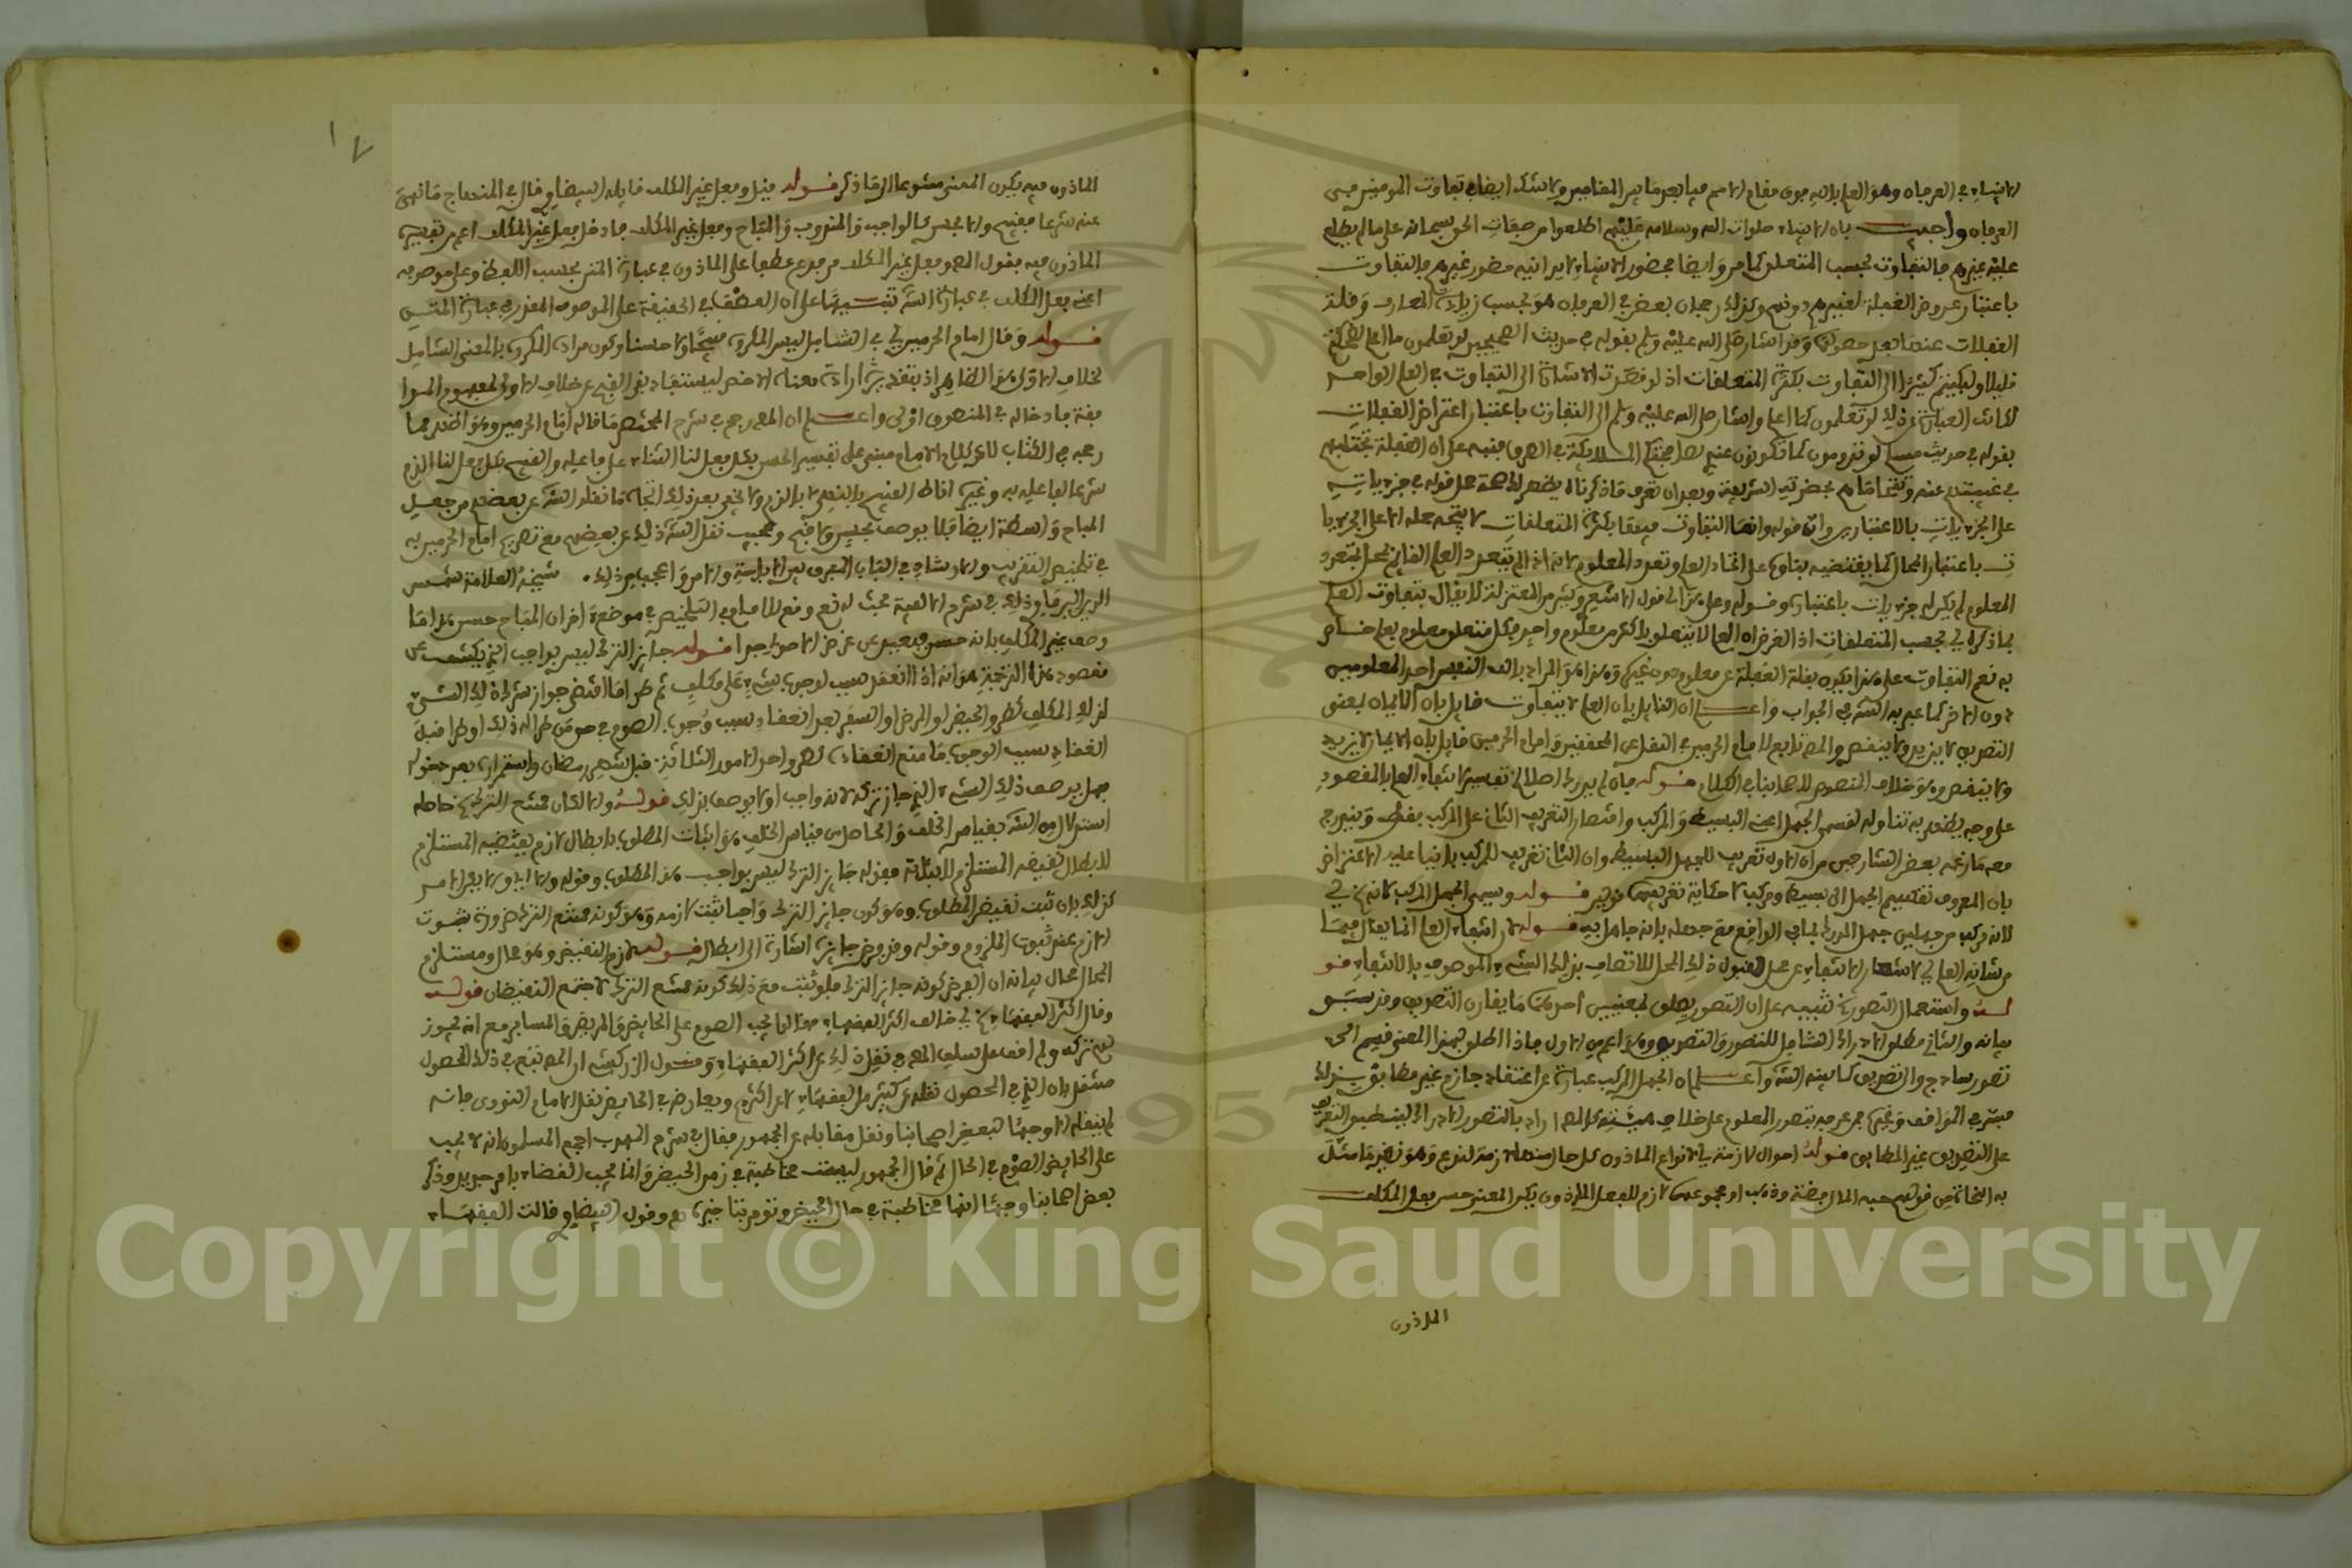 الانبياء في العرفان وهو العلم بالله فوق مقام الامم فيما بعد ما بين المقامين ولا شك ايضا في تفاوت المومنين في
العرفان واجيب بان الانبياء صلوات الله وسلامه عليهم اطلعوا من صفات الحق سبحانه على ما لم يطلع
عليه غيرهم فالتفاوت بحسب المتعلق كما مر وايضا فحضور الانبياء لا يدانيه حضور غيرهم فالتفاوت
باعتبار عروض الغفلة لغيرهم دونهم وكذلك رجحان بعض في العرفان هو بحسب زيادة المعارف وقلة
الغفلات عنها بعد حصولها وقد اشار صلى الله عليه وسلم بقوله في حديث الصحيحين لو تعلمون ما اعلم لضحكتم
قليلا ولبكيتم كثيرا الى التفاوت بكثرة المتعلقات اذ لو قصدت الاشارة الى التفاوت في العلم الواحد
لكانت العبارة عن ذلك لو تعلمون كما اعلم واشار صلى الله عليه وسلم الى التفاوت باعتبار اعتراض الغفلات
بقوله في حديث مسلم لو تدومون كما تكونون عندي لصافحتكم الملائكة في الطرق فنبه على ان الغفلة تختلف
على الجزءيات بالاعتبارين وان قوله وانما التفاوت فيها بكثرة المتعلقات لا يتجه حمله الا على الجزءيا
ت باعتبار المحال كما يقتضيه بناؤه على اتحاد العلم وتعدد المعلوم لانه اذا لم يتعدد العلم القائم بمحل بتعدد
المعلوم لم يكن له جزءيات باعتباره وقوله وعلى هذا اي قول الاشعري وكثير من المعتزلة لا يقال بتفاوت العلم
بما ذكر اي بحسب المتعلقات اذ الغرض ان العلم لا يتعلق باكثر من معلوم واحد فكل متعلق معلوم بعلم خاص
به نعم التفاوت على هذا يكون بقلة الغفلة عن معلوم دون غيره وهذا هو المراد بالف النفس احد المعلومين
دون الاخر كما عبر به الشه في الجواب واعلم ان القايل بان العلم لا يتفاوت قايل بان الايمان بمعنى
التصديق لا يزيد ولا ينقص والمص تابع للامام الحرمين في النقل عن المحققين وامام الحرمين قايل بان الايمان لا يزيد
ولا ينقص وهو خلاف المنصوص للاصحابنا في الكلام قوله
على وجه يظهر به تناوله لقسمي الجهل اعني البسيط والمركب واقتصار التعريف الثاني على المركب فقط ويندرج
معه ما زعمه بعض الشارحين من ان الاول تعريف للجهل البسيط وان الثاني تعريف للمركب بانيا عليه الاعتراض
بان المعروف تقسيم الجهل الى بسيط ومركب لا حكاية تعريفين قولين قوله وسمي الجهل المركب لانه اي
لانه مركب من جهلين جهل المدرك بما في الواقع مع جهله بانه جاهل به قوله لان انتفاء العلم انما يقال فيما
من شانه العلم اي لاشعار الانتفاء عن محل بقبول ذلك المحل للاتصاف بذلك الشيء الموصوف بالانتفاء قو
له واستعمال التصور تنبيه على ان التصور يطلق بمعنيين احدهما ما يقارن التصديق وقد سبق
بيانه والثاني مطلق الادراك الشامل للتصور والتصديق وهو اعم من الاول فاذا المطلق بهذا المعنى قسم الى
تصور ساذج والى تصديق كما بينه الشه واعلم ان الجهل المركب عبارة عن اعتقاد جازم غير مطابق بذلك
على التصديق غير المطابق قوله احوال لازمة اي لانواع الماذون كل حال منها لازمة لنوع وهو نظير ما مثل
به النحاة من قولهم جبة المال فضة وذهب او مجموعها لازم للفعل الماذون بكر المعنى حسن فعل المكلف
الماذون
١٧
الماذون فيه بكون المعنى متنوعا الى ما ذكر قوله قيل وفعل غير المكلف قايله البيضاوي قال في المنهاج ما نهي
عنه شرعا فقبيح والا فحسن كالواجب والمندوب والمباح وفعل غير المكلف فادخل فعل غير المكلف اعم من تقسيم
الماذون فيه فقول المص وفعل غير المكلف مرفوع عطفا على الماذون في عبارة المتن بحسب اللفظ وعلى موصوفه
اعني فعل المكلف في عبارة الشه تنبيها على ان العطف في الحقيقة على الموصوف المقدر في عبارة المتن
قوله وقال امام الحرمين اي في الشامل ليس المكروه قبيحا ولا حسنا وكون مراده المكروه بالمعنى الشامل
لخلاف الاولى هو الظاهر اذ بتقدير ارادة معناه الاخص يستفاد نفي القبح عن خلاف الاولى بمفهوم الموا
فقة فادخاله في المنصوص اولى واعلم ان المص رجح في شرح المختصر ما قاله امام الحرمين وهو اظهر مما
رجحه في الكتاب لان كلام الامام مبني على تفسير الحسن بكل فعل لنا الثناء على فاعله والقبيح بكل فعل لنا الذم
شرعا لفاعله به
المباح واسطة ايضا فلا يوصف بحسن ولا قبح وعجيب نقل الشه ذلك عن بعضهم مع تصريح امام الحرمين به
في تلخيص التقريب والارشاد في الباب المعروف بين الاباحة والامر واعجب من ذلك شيخنا العلامة شمس
الدين البرماوي ذلك في شرح الالفية بحثا له نعم وقع للامام في التلخيص في موضع اخر ان المباح حسن واما
وصف غير المكلف بانه حسن فبعيد عن غرض الاصول جدا قوله جايز الترك ليس بواجب الخ يكشف عن
مقصود هذه الترجمة هو انه اذا انعقد سبب لوجوب شيء على مكلف ثم طرا ما اقتضى جواز ترك ذلك الشيء
لذلك المكلف كطرو الحيض او المرض او السفر بعد انعقاد سبب وجوب الصوم في حق من طرا له ذلك او طرا قبل
انعقاد سبب الوجوب ما منع انعقاده كطرو احد الامور الثلاثة قبل شهر رمضان واستمراره بعد دخوله
فهل يوصف ذلك الشيء الذي جاز تركه لانه واجب او لا يوصف بذلك قوله والا لكان ممتنع الترك اي حاصله
استدلال من الشه بقياس الخلف والحاصل من قياس الخلف هو اثبات المطلوب بابطال لازم نقيضه المستلزم
للابطال نقيضه المستلزم لاثباته فقوله جايز الترك ليس بواجب هذا المطلوب وقوله والا اي والا يكن الامر
كذلك بان ثبت نقيض المطلوب وهو كون جايز الترك واجبا ثبت لازمه وهو كونه ممتنع الترك ضرورة ثبوت
اللازم عند ثبوت الملزوم وقوله وقد فرض جايزه اشارة الى ابطال قوله لازم النقيض وهو محال ومستلزم
المحال محال بيانه ان الفرض كونه جايز الترك فلو ثبت مع ذلك كونه ممتنع الترك لاجتمع النقيضان قوله
وقال اكثر الفقهاء اي خالف اكثر الفقهاء فقالوا يجب الصوم على الحايض والمريض والمسافر مع انه يجوز
لهم تركه ولم اقف على سلف المص في نقل ذلك عن اكثر الفقهاء وقول الزركشي ان المص تبع في ذلك المحصول
منتقد بان الذي في المحصول نقله عن كثير من الفقهاء لا عن اكثرهم ويعارضه في الحايض نقل الامام النووي فانه
لم ينقله الا وجها لبعض اصحابنا ونقل مقابله عن الجمهور فقال في شرح المهذب اجمع المسلمون انه لا يجب
على الحايض الصوم في الحال ثم قال الجمهور ليست مخاطبة في زمن الحيض وانما يجب القضاء بامر جديد وذكر
بعض اصحابنا وجها انها مخاطبة في حال الحيض وتؤمر بتاخيره نعم وقول البيضاوي قالت الفقهاء
Copyright © King Saud University